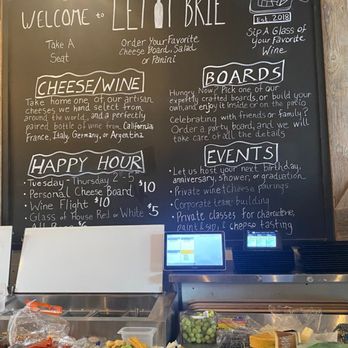 WELCOME to LET IT BRIE
Est. 2018
Take A
Seat
Order Your Favorite
Cheese Board, Salad
or Panini
Sip A Glass of
Your Favorite
Wine
CHEESE/WINE
Take home one of our artisan
cheeses we hand select from
around the world, and a perfectly
paired bottle of wine from California
France, Italy, Germany, or Argentina
BOARDS
Hungry Now? Pick one of our
expertly crafted boards, or build your
own, and enjoy it inside or on the patio
Celebrating with friends or family?
Order a party board, and we will
take care of all the details
HAPPY HOUR
• Tuesday - Thursday 2-5
• Personal Cheese Board $10
• Wine Flight $10
• Glass of House Red or White $5
EVENTS
Let us host your next birthday,
anniversary, shower, or graduation
• Private wine & cheese pairings
• Corporate team building
• Private classes for charcuterie,
paint & sip, & cheese tasting